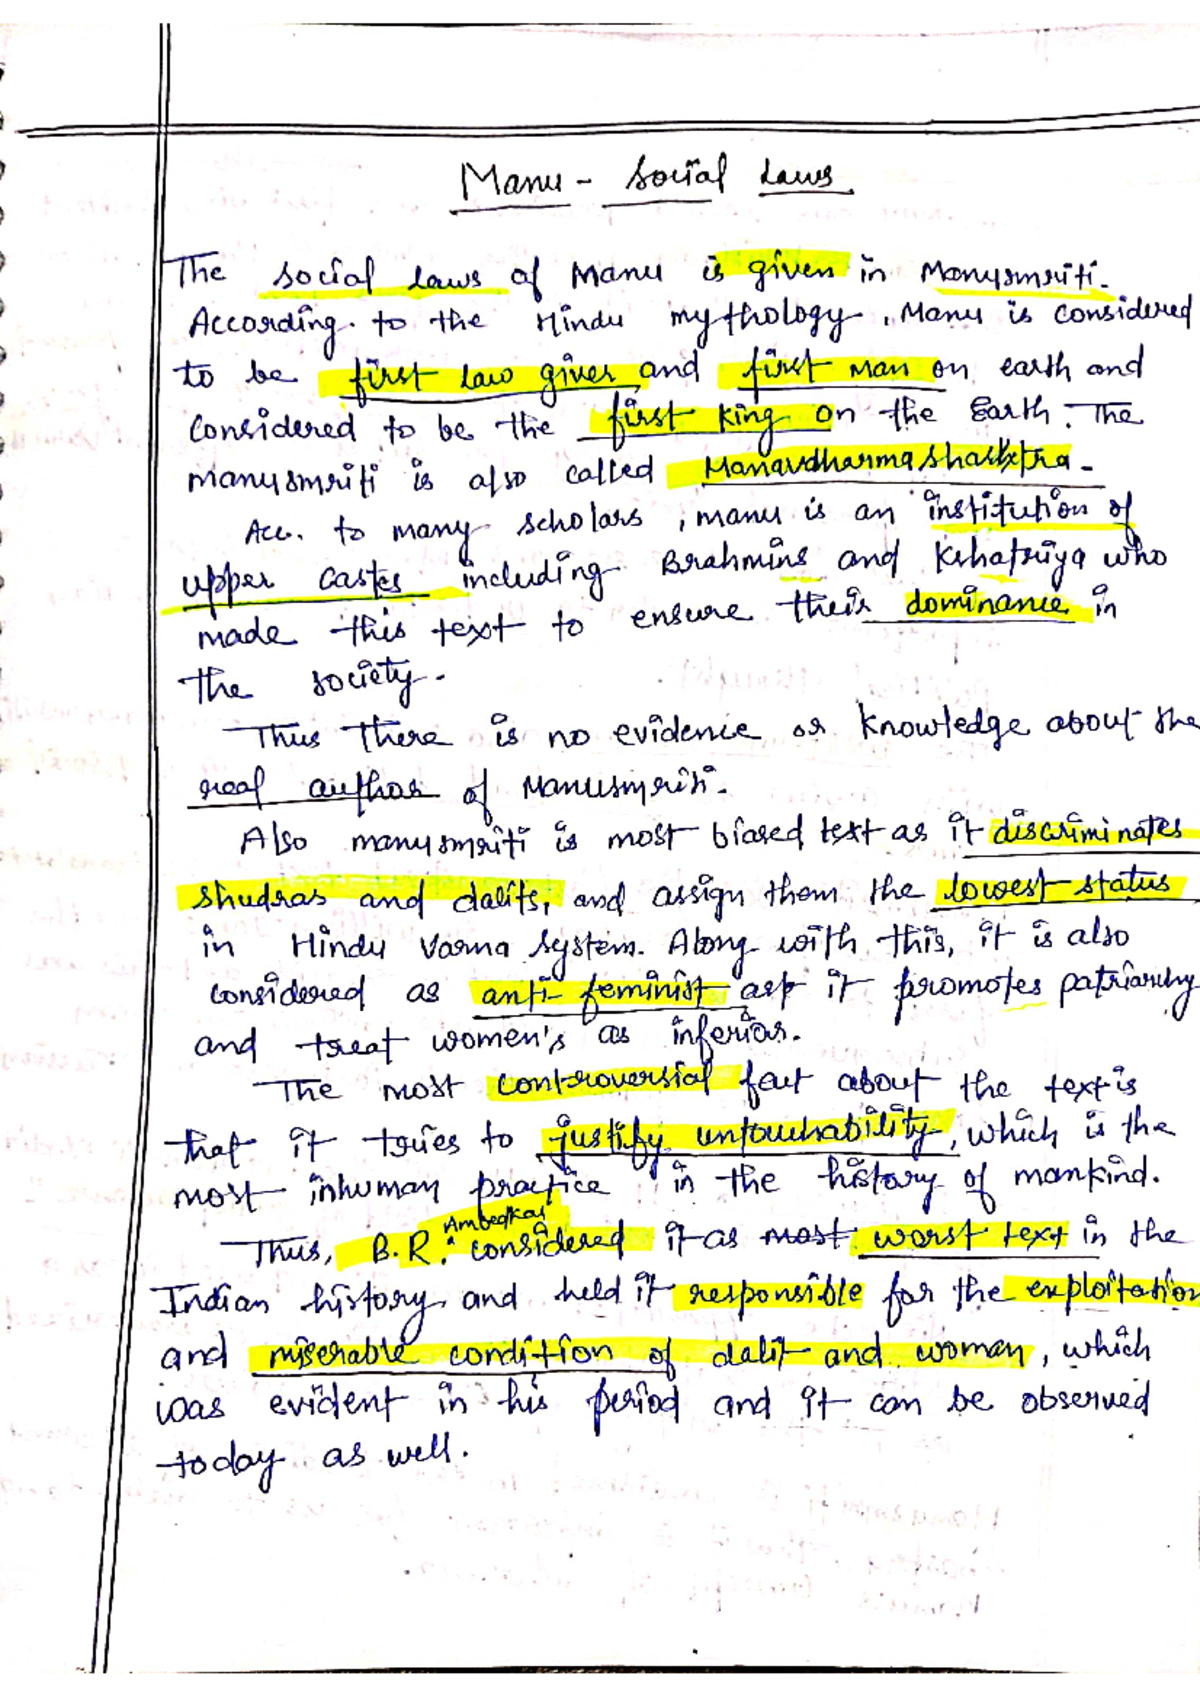 Manu - Social Laws
The social laws of Manu is given in Manusmriti.
According to the Hindu mythology, Manu is considered
to be first law giver and first man on earth and
considered to be the first king on the Earth. The
manusmriti is also called Manavdharmashashtra.
Acc. to many scholars, manu is an institution of
upper castes including Brahmins and Kshatriya who
made this text to ensure their dominance in
the society.
Thus there is no evidence or knowledge about the
real author of Manusmriti.
Also manusmriti is most biased text as it discriminates
shudras and dalits, and assign them the lowest status
in Hindu Varna System. Along with this, it is also
considered as anti-feminist as it promotes patriarchy
and treat women's as inferior.
The most controversial fact about the text is
that it tries to justify untouchability, which is the
most inhuman practice in the history of mankind.
Thus, B.R. Ambedkar considered it as most worst text in the
Indian history and held it responsible for the exploitation
and miserable condition of dalit and woman, which
was evident in his period and it can be observed
today as well.